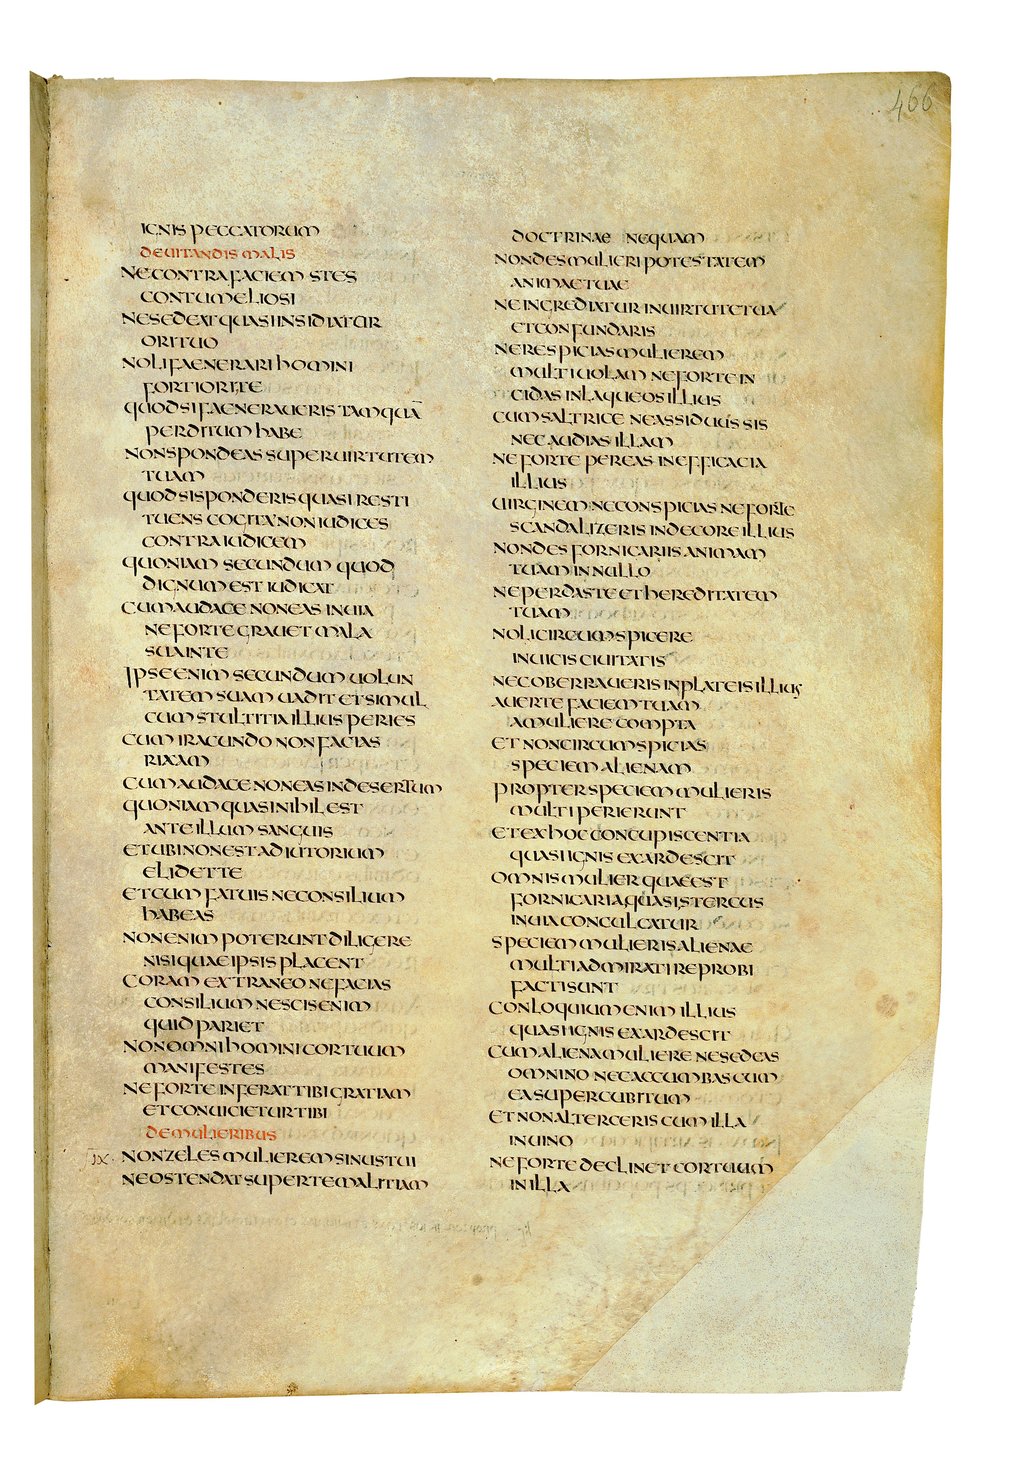 466
IGNIS PECCATORUM
DE UITANDIS MALIS
NE CONTRA FACIEM STES
CONTUMELIOSI
NE SEDEAT QUASI INSIDIATUR
ORI TUO
NOLI FAENERARI HOMINI
FORTIORI TE
QUOD SI FAENERAUERIS TAMQUA̅
PERDITUM HABE
NON SPONDEAS SUPER UIRTUTEM
TUAM
QUOD SI SPONDERIS QUASI RESTI
TUENS COGITA NON IUDICES
CONTRA IUDICEM
QUONIAM SECUNDUM QUOD
DIGNUM EST IUDICAT
CUM AUDACE NON EAS IN UIA
NE FORTE GRAUET MALA
SUA IN TE
IPSE ENIM SECUNDUM UOLUN
TATEM SUAM UADIT ET SIMUL
CUM STULTITIA ILLIUS PERIES
CUM IRACUNDO NON FACIAS
RIXAM
CUM AUDACE NON EAS IN DESERTUM
QUONIAM QUASI NIHIL EST
ANTE ILLUM SANGUIS
ET UBI NON EST ADIUTORIUM
ELIDET TE
ET CUM FATUIS NE CONSILIUM
HABEAS
NON ENIM POTERUNT DILIGERE
NISI QUAE IPSIS PLACENT
CORAM EXTRANEO NE FACIAS
CONSILIUM NESCIS ENIM
QUID PARIET
NON OMNI HOMINI COR TUUM
MANIFESTES
NE FORTE INFERAT TIBI GRATIAM
ET CONUICIETUR TIBI
DE MULIERIBUS
IX. NON ZELES MULIEREM SINUS TUI
NE OSTENDAT SUPER TE MALITIAM
DOCTRINAE NEQUAM
NON DES MULIERI POTESTATEM
ANIMAE TUAE
NE INGREDIATUR IN UIRTUTE TUA
ET CONFUNDARIS
NE RESPICIAS MULIEREM
MULTIUOLAM NE FORTE IN
CIDAS IN LAQUEOS ILLIUS
CUM SALTRICE NE ASSIDUUS SIS
NEC AUDIAS ILLAM
NE FORTE PEREAS IN EFFICACIA
ILLIUS
UIRGINEM NE CONSPICIAS NE FORTE
SCANDALIZERIS IN DECORE ILLIUS
NON DES FORNICARIIS ANIMAM
TUAM IN NULLO
NE PERDAS TE ET HEREDITATEM
TUAM
NOLI CIRCUMSPICERE
IN UICIS CIUITATIS
NEC OBERRAUERIS IN PLATEIS ILLIUS
AUERTE FACIEM TUAM
A MULIERE COMPTA
ET NON CIRCUMSPICIAS
SPECIEM ALIENAM
PROPTER SPECIEM MULIERIS
MULTI PERIERUNT
ET EX HOC CONCUPISCENTIA
QUASI IGNIS EXARDESCIT
OMNIS MULIER QUAE EST
FORNICARIA QUASI STERCUS
IN UIA CONCULCATUR
SPECIEM MULIERIS ALIENAE
MULTI ADMIRATI REPROBI
FACTI SUNT
CONLOQUIUM ENIM ILLIUS
QUASI IGNIS EXARDESCIT
CUM ALIENA MULIERE NE SEDEAS
OMNINO NEC ACCUMBAS CUM
EA SUPER CUBITUM
ET NON ALTERCERIS CUM ILLA
IN UINO
NE FORTE DECLINET COR TUUM
IN ILLA